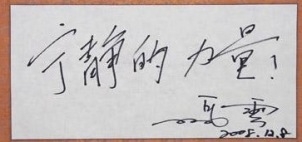 宁静的力量！
马云
2008.12.8